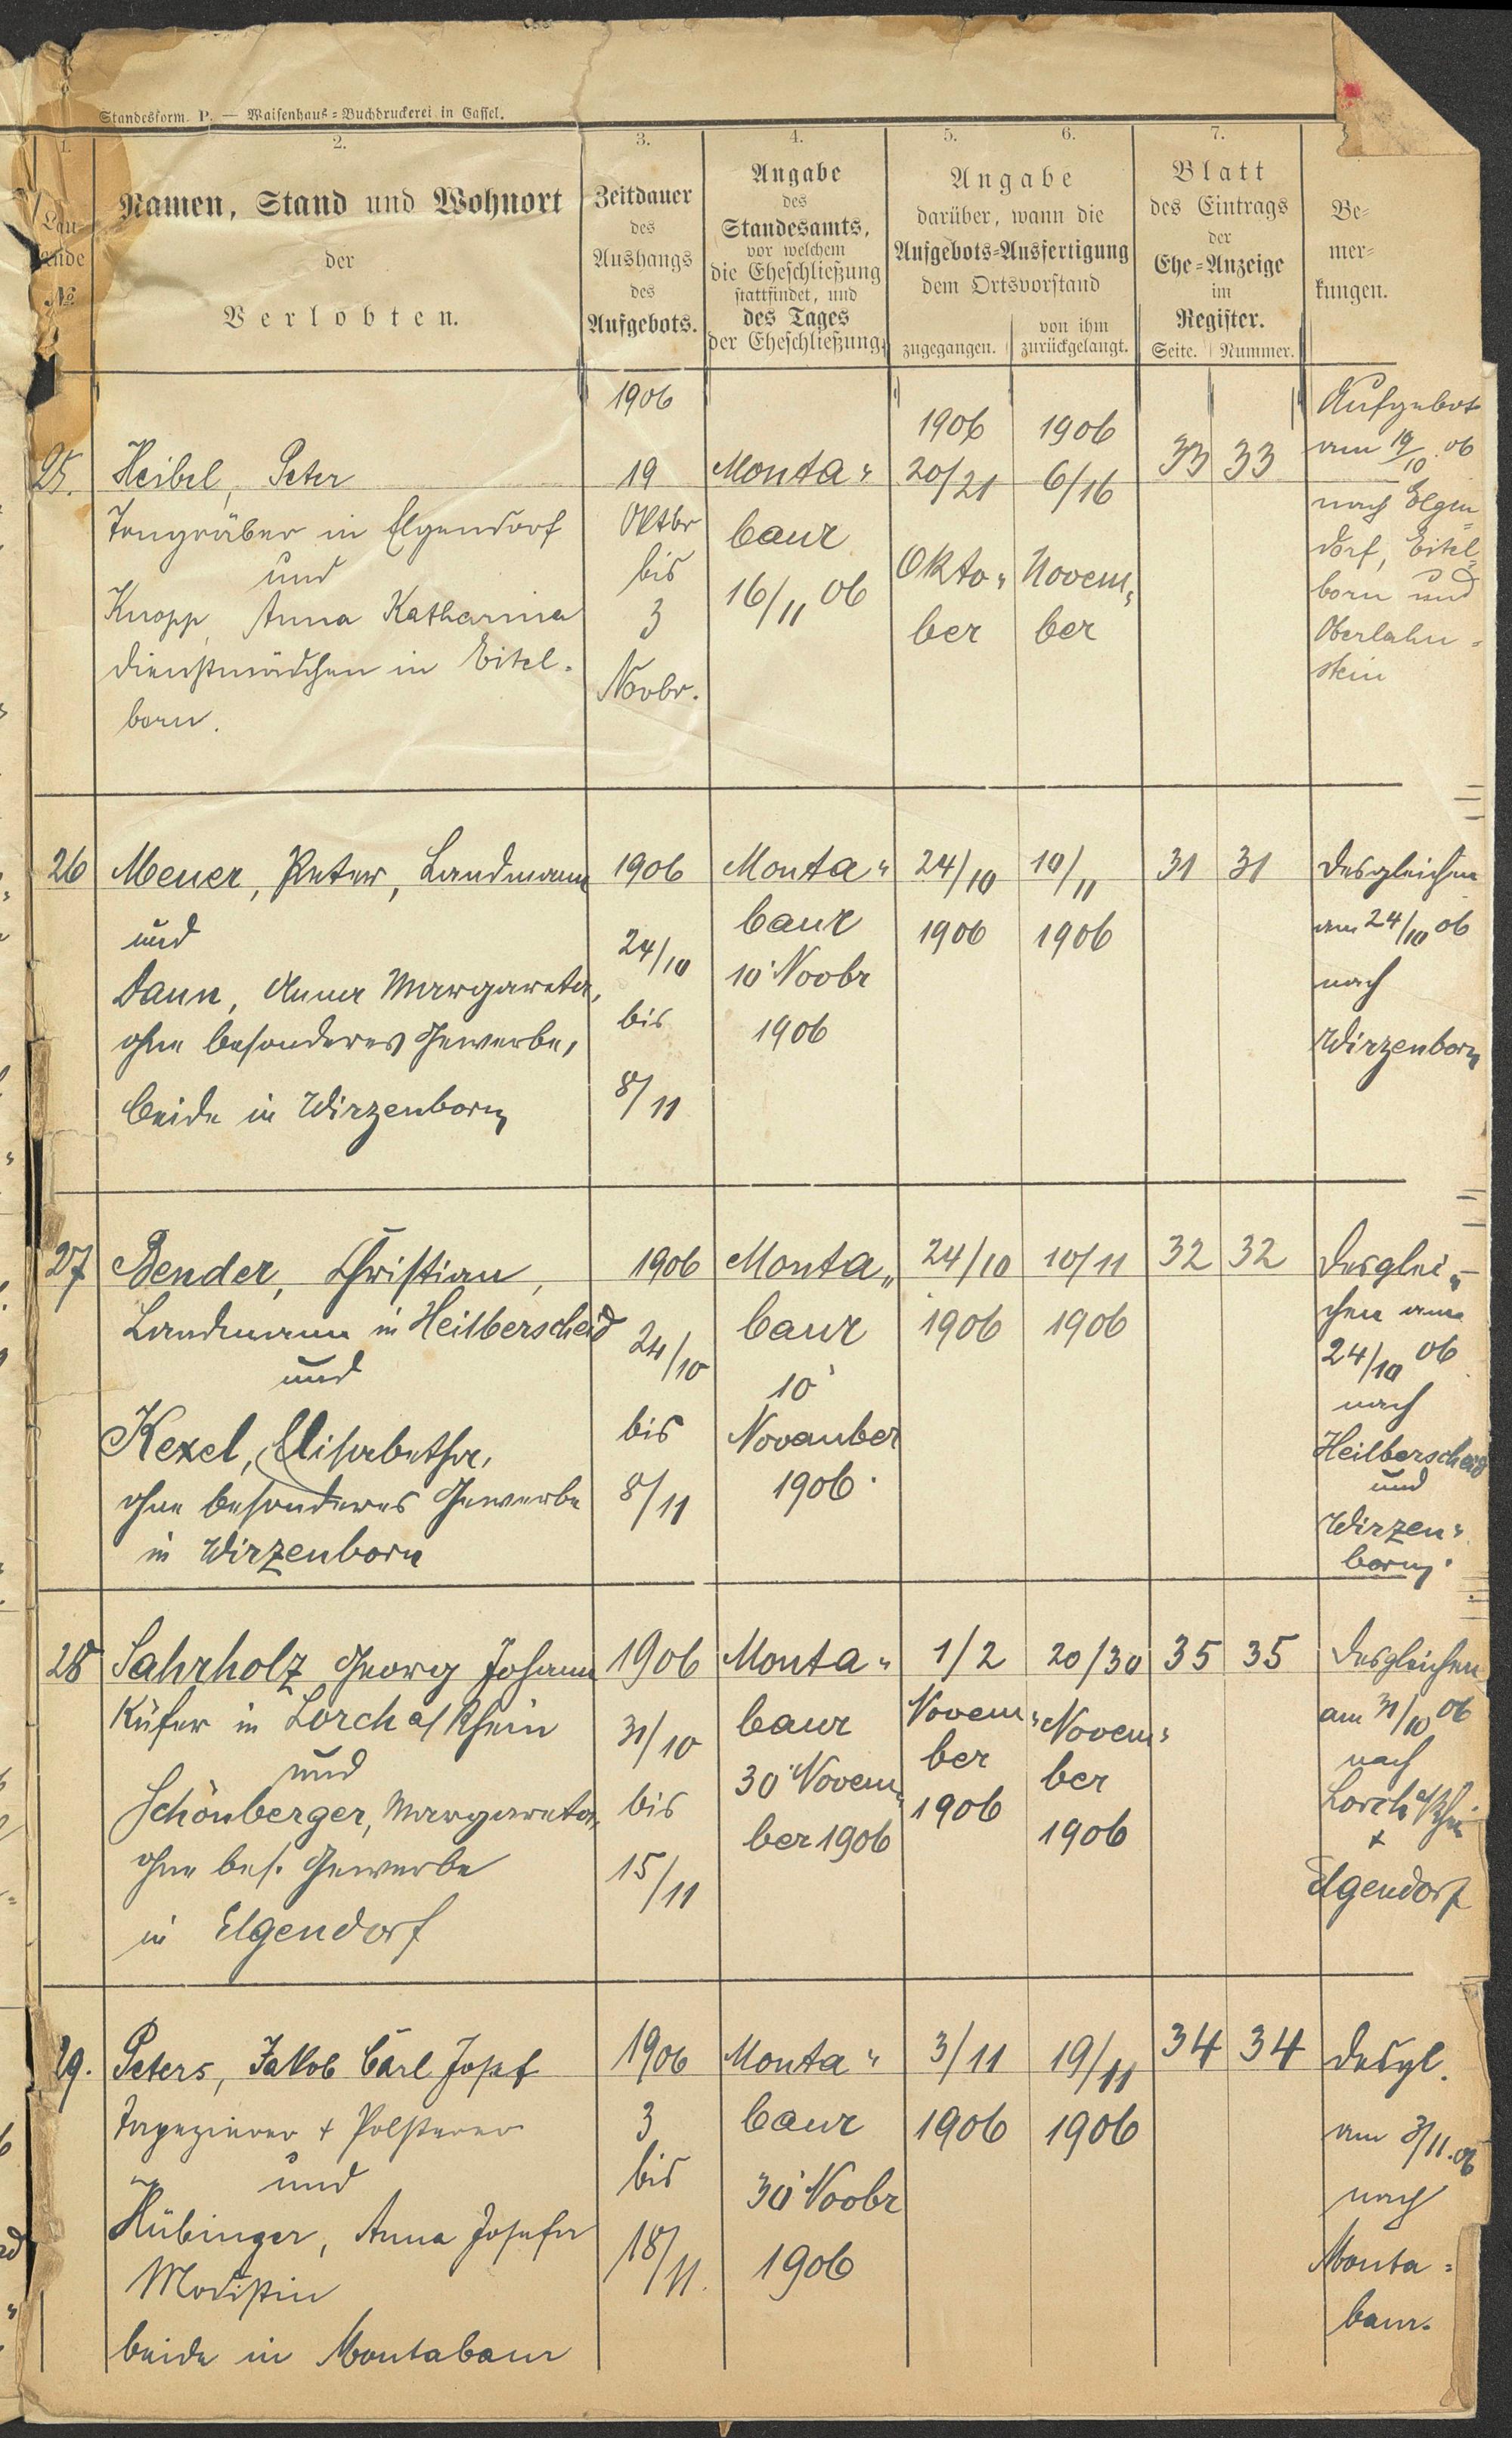 Standesform. P. — Waisenhaus-Buchdruckerei in Cassel.
1. 2. 3. 4. 5. 6. 7.
Lau-
fende
№
Namen, Stand und Wohnort
der
Verlobten.
Zeitdauer
des
Aushangs
des
Aufgebots.
Angabe
des
Standesamts,
vor welchem
die Eheschließung
stattfindet, und
des Tages
der Eheschließung.
Angabe
darüber, wann die
Aufgebots-Ausfertigung
dem Ortsvorstand
zugegangen.
von ihm
zurückgelangt.
Blatt
des Eintrags
der
Ehe-Anzeige
im
Register.
Seite. Nummer.
Be-
mer-
kungen.
25.
Heibel, Peter
Tongräber in Elgendorf
und
Knopp, Anna Katharina
Dienstmädchen in Eitel-
born.
1906
19
Oktbr
bis
3
Novbr.
Monta-
baur
16/11 06
1906
20/21
Okto-
ber
1906
6/16
Novem-
ber
33 33
Aufgebot
am 19/10. 06
nach Elgen-
dorf, Eitel-
born und
Oberlahn-
stein
26
Meuer, Peter, Landmann
und
Dann, Anna Margareta,
ohne besonderes Gewerbe,
beide in Wirzenborn
1906
24/10
bis
8/11
Monta-
baur
10 Novbr
1906
24/10
1906
10/11
1906
31 31
Desgleichen
am 24/10 06
nach
Wirzenborn
27
Bender, Christian,
Landmann in Heilberscheid
und
Kexel, Elisabetha,
ohne besonderes Gewerbe
in Wirzenborn
1906
24/10
bis
8/11
Monta-
baur
10
November
1906.
24/10
1906
10/11
1906
32 32
Desglei-
chen am
24/10 06
nach
Heilberscheid
und
Wirzen-
born.
28
Sahrholz Georg Johann
Küfer in Lorch a/ Rhein
und
Schönberger, Margareta,
ohne bes. Gewerbe
in Elgendorf
1906
31/10
bis
15/11
Monta-
baur
30 Novem-
ber 1906
1/2
Novem-
ber
1906
20/30
Novem-
ber
1906
35 35
Desgleichen
am 31/10 06
nach
Lorch a/Rhein
+
Elgendorf
29.
Peters, Jakob Carl Josef
Tapezierer + Polsterer
und
Hübinger, Anna Josefa
Modistin
beide in Montabaur
1906
3
bis
18/11.
Monta-
baur
30 Novbr
1906
3/11
1906
19/11
1906
34 34
Desgl.
am 3/11.06
nach
Monta-
baur.